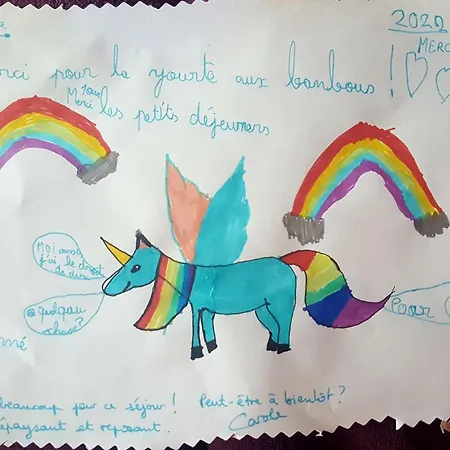 2020
MERC
rci pour la yourte aux bambous !
Merci
les petits déjeuners
Moi aussi
j'ai le droit
de dire
quelque
chose ?
Poar
beaucoup pour ce séjour ! Peut-être à bientôt ?
épaysant et reposant. Carole